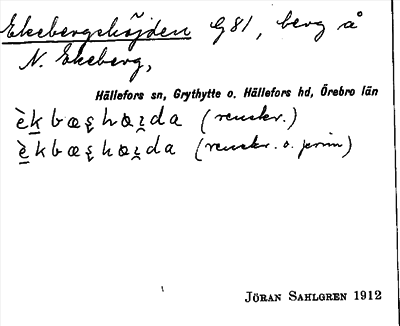 Ekebergshöjden G81, berg å
N. Ekeberg,
Hällefors sn, Grythytte o. Hällefors hd, Örebro län
(renskr.)
(renskr. o. prim)
JÖRAN SAHLGREN 1912